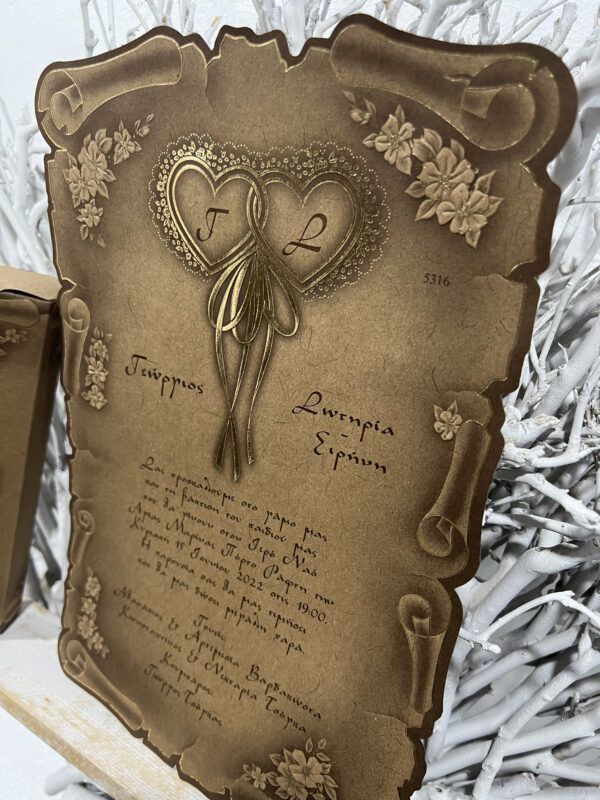 Γ Σ
5316
Γεώργιος
Σωτηρία
-
Ειρήνη
Σας προσκαλούμε στο γάμο μας
και τη βάπτιση του παιδιού μας
που θα γίνουν στον Ιερό Ναό
Αγίας Μαρίνας Πόρτο Ράφτη την
Κυριακή 15 Ιουνίου 2022 στις 19:00.
Η παρουσία σας θα μας τιμήσει
και θα μας δώσει μεγάλη χαρά.
Γονείς
Αθανάσιος & Αρτεμισία
Κωνσταντίνος & Νεκταρία Τσόγκα
Κουμπάρος:
Γιώργος Τσόγκας